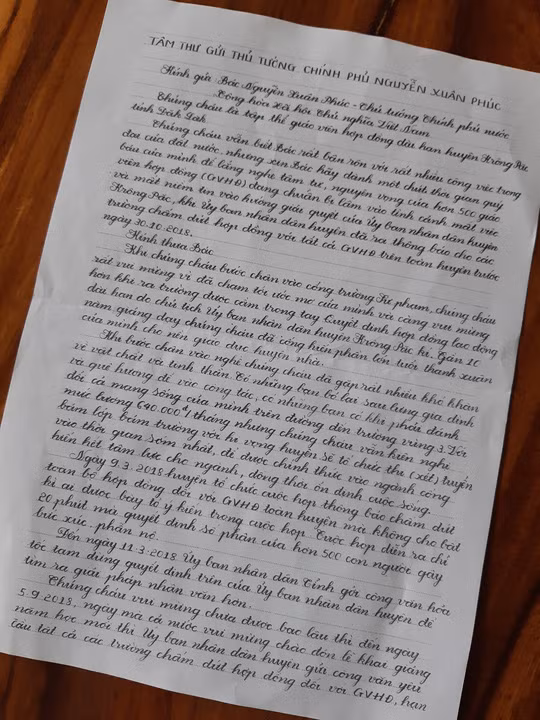 TÂM THƯ GỬI THỦ TƯỚNG CHÍNH PHỦ NGUYỄN XUÂN PHÚC
Kính gửi Bác Nguyễn Xuân Phúc - Thủ tướng Chính phủ nước
Cộng hòa xã hội Chủ nghĩa Việt Nam
Chúng cháu là tập thể giáo viên hợp đồng dài hạn huyện Krông Pắc
tỉnh Đăk Lăk
Chúng cháu vẫn biết Bác rất bận rộn với rất nhiều công việc trọng
đại của đất nước. nhưng xin Bác hãy dành một chút thời gian quý
báu của mình để lắng nghe tâm tư, nguyện vọng của hơn 500 giáo
viên hợp đồng (GVHĐ) đang chuẩn bị lâm vào tình cảnh mất việc
và mất niềm tin vào hướng giải quyết của Ủy ban nhân dân huyện
Krông Pắc, khi Ủy ban nhân dân huyện đã ra thông báo cho các
trường chấm dứt hợp đồng với tất cả GVHĐ trên toàn huyện trước
ngày 30.10.2018.
Kính thưa Bác
Khi chúng cháu bước chân vào cổng trường Sư phạm, chúng cháu
rất vui mừng vì đã chạm tới ước mơ của mình và càng vui mừng
hơn khi ra trường được cầm trong tay Quyết định hợp đồng lao động
dài hạn do chủ tịch Ủy ban nhân dân huyện Krông Pắc kí. Gần 10
năm giảng dạy chúng cháu đã cống hiến phần lớn tuổi thanh xuân
của mình cho nền giáo dục huyện nhà.
Khi bước chân vào nghề chúng cháu đã gặp rất nhiều khó khăn
về vật chất và tinh thần. Có những bạn bỏ lại sau lưng gia đình
và quê hương để vào công tác, có những bạn có khi phải đánh
đổi cả mạng sống của mình trên đường đến trường vùng 3. Với
mức lương 640.000đ/tháng nhưng chúng cháu vẫn kiên nghị
bám lớp bám trường với hi vọng huyện sẽ tổ chức thi (xét) tuyển
vào thời gian sớm nhất, để được chính thức vào ngành cống
hiến hết tâm lực cho ngành, đồng thời ổn định cuộc sống.
Ngày 9.3.2018 huyện tổ chức cuộc họp thông báo chấm dứt
toàn bộ hợp đồng đối với GVHĐ toàn huyện mà không cho bất
kì ai được bày tỏ ý kiến trong cuộc họp. Cuộc họp diễn ra chỉ
20 phút mà quyết định số phận của hơn 500 con người gây
bức xúc. phẫn nộ.
Đến ngày 11.3.2018 Ủy ban nhân dân Tỉnh gởi công văn hỏa
tốc tạm dừng quyết định trên của Ủy ban nhân dân huyện để
tìm ra giải pháp nhân văn hơn.
Chúng cháu vui mừng chưa được bao lâu thì đến ngày
5.9.2018, ngày mà cả nước vui mừng chào đón lễ khai giảng
năm học mới thì Ủy ban nhân dân huyện gửi công văn yêu
cầu tất cả các trường chấm dứt hợp đồng đối với GVHĐ, hạn